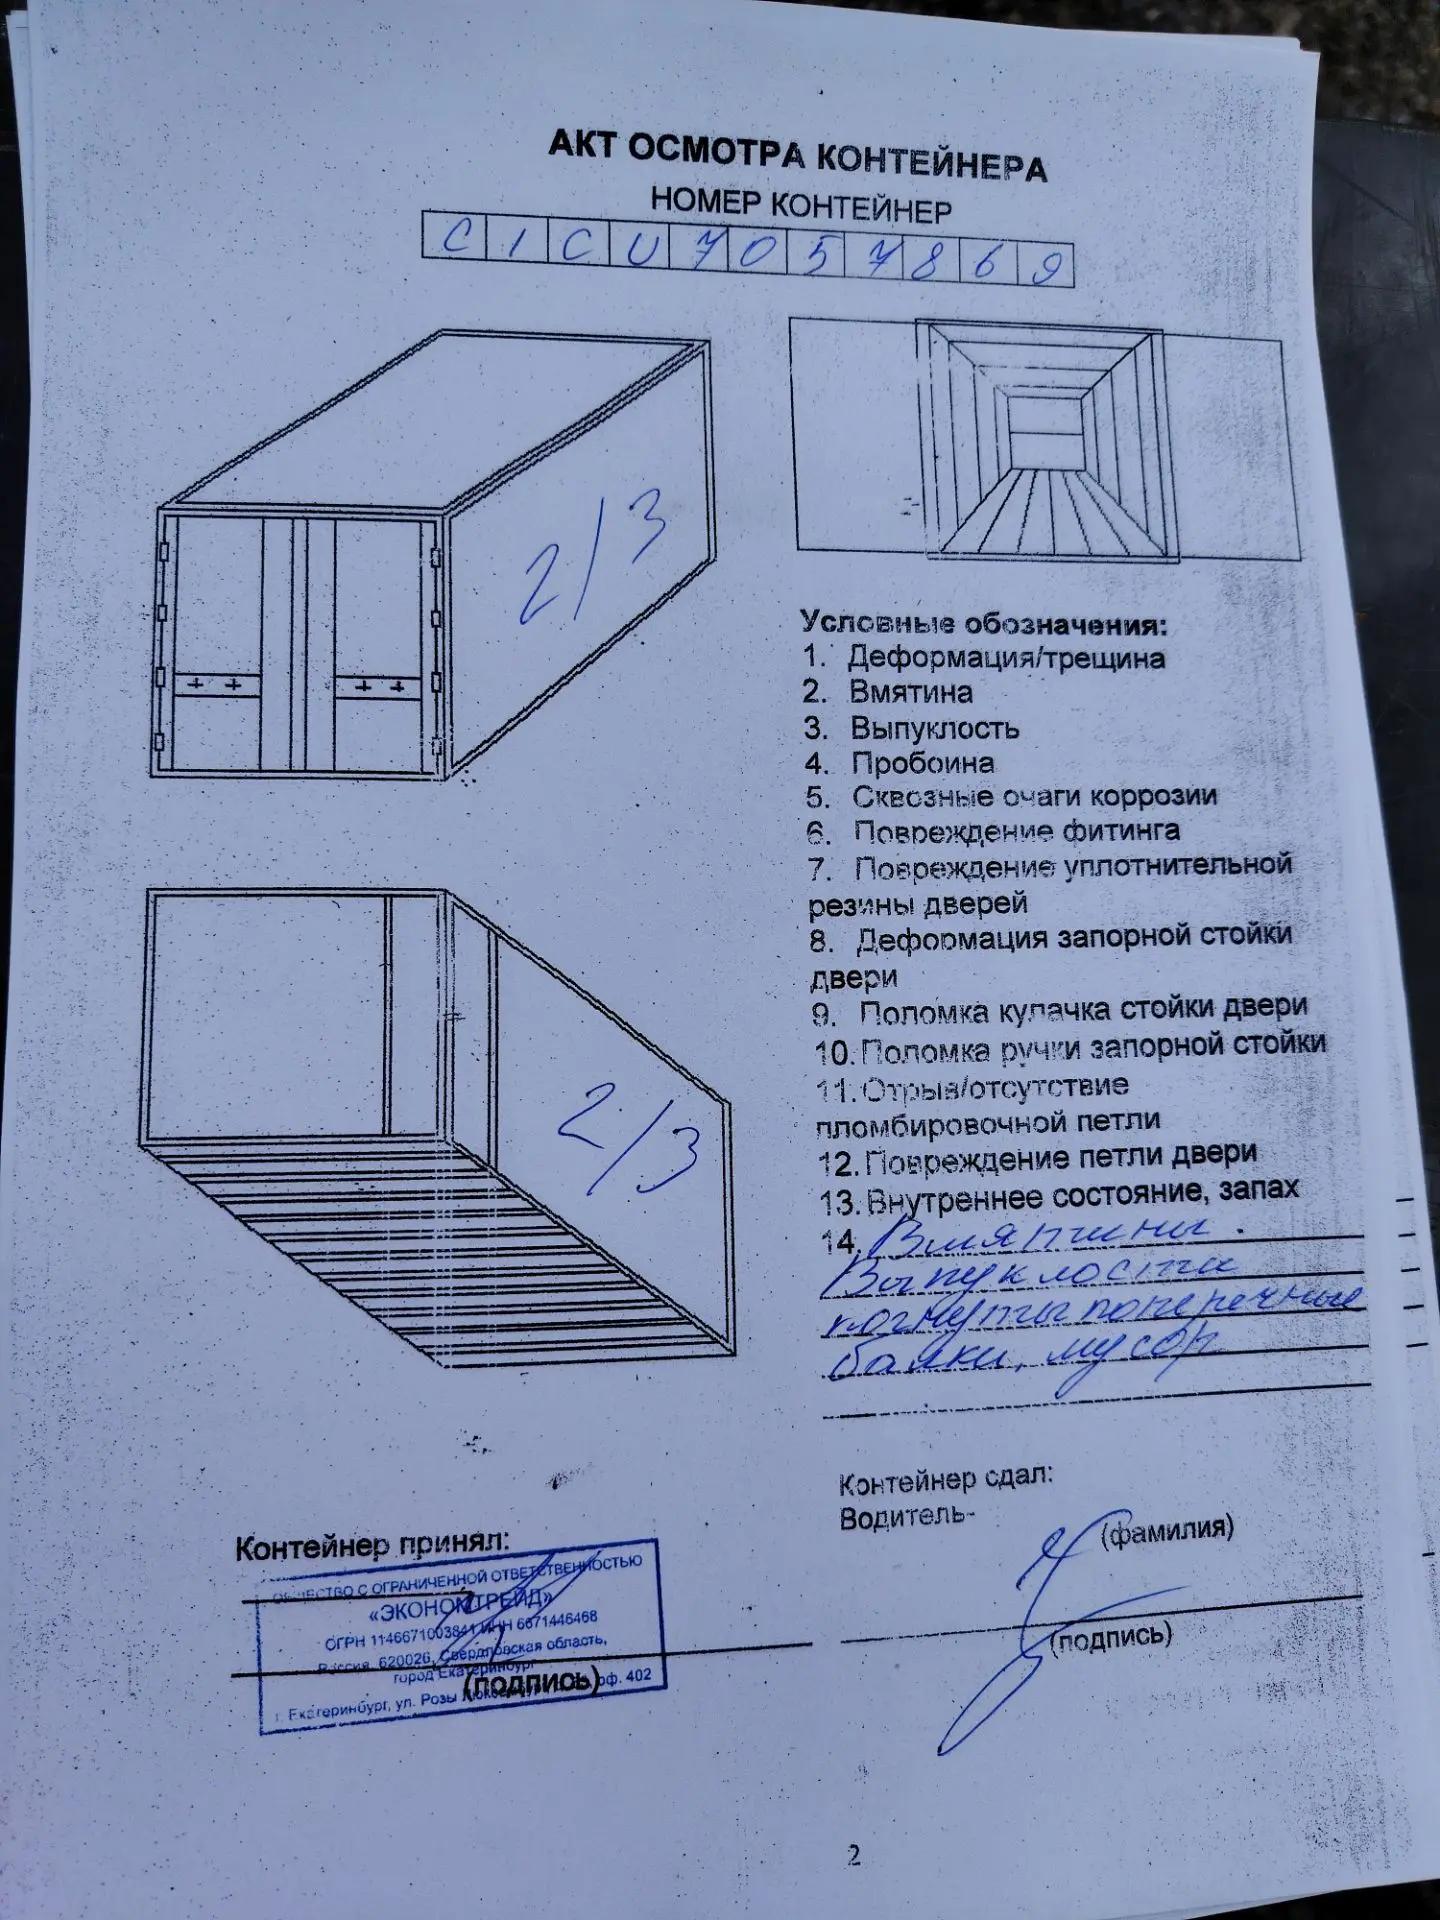 АКТ ОСМОТРА КОНТЕЙНЕРА
НОМЕР КОНТЕЙНЕР
C I C U 7 0 5 7 8 6 9
2/3
Условные обозначения:
1. Деформация/трещина
2. Вмятина
3. Выпуклость
4. Пробоина
5. Сквозные очаги коррозии
6. Повреждение фитинга
7. Повреждение уплотнительной
резины дверей
8. Деформация запорной стойки
двери
9. Поломка кулачка стойки двери
10. Поломка ручки запорной стойки
11. Отрыв/отсутствие
пломбировочной петли
12. Повреждение петли двери
13. Внутреннее состояние, запах
14. Вмятины.
Выпуклости
погнуты поперечные
балки, мусор
2/3
Контейнер сдал:
Водитель-
(фамилия)
(подпись)
Контейнер принял:
ОБЩЕСТВО С ОГРАНИЧЕННОЙ ОТВЕТСТВЕННОСТЬЮ
«ЭКОНОМТРЕЙД»
ОГРН 1146671003841 ИНН 6671446468
Россия, 620026, Свердловская область,
город Екатеринбург
г. Екатеринбург, ул. Розы оф. 402
(подпись)
2